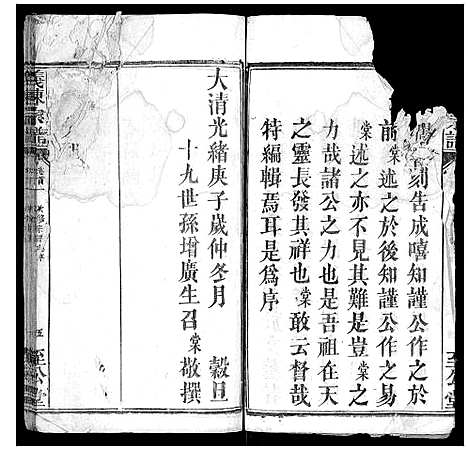 刻告成嘻知謹公作之於
前棠述之於後知謹公作之易
棠述之亦不見其難是豈棠之
力也哉諸公之力也是吾祖在天
之靈長發其祥也棠敢云督哉
特編輯焉耳是為序
大清光緒庚子歲仲冬月 穀旦
十九世孫增廣生召棠敬撰
義陳宗譜 卷首
五
至公堂